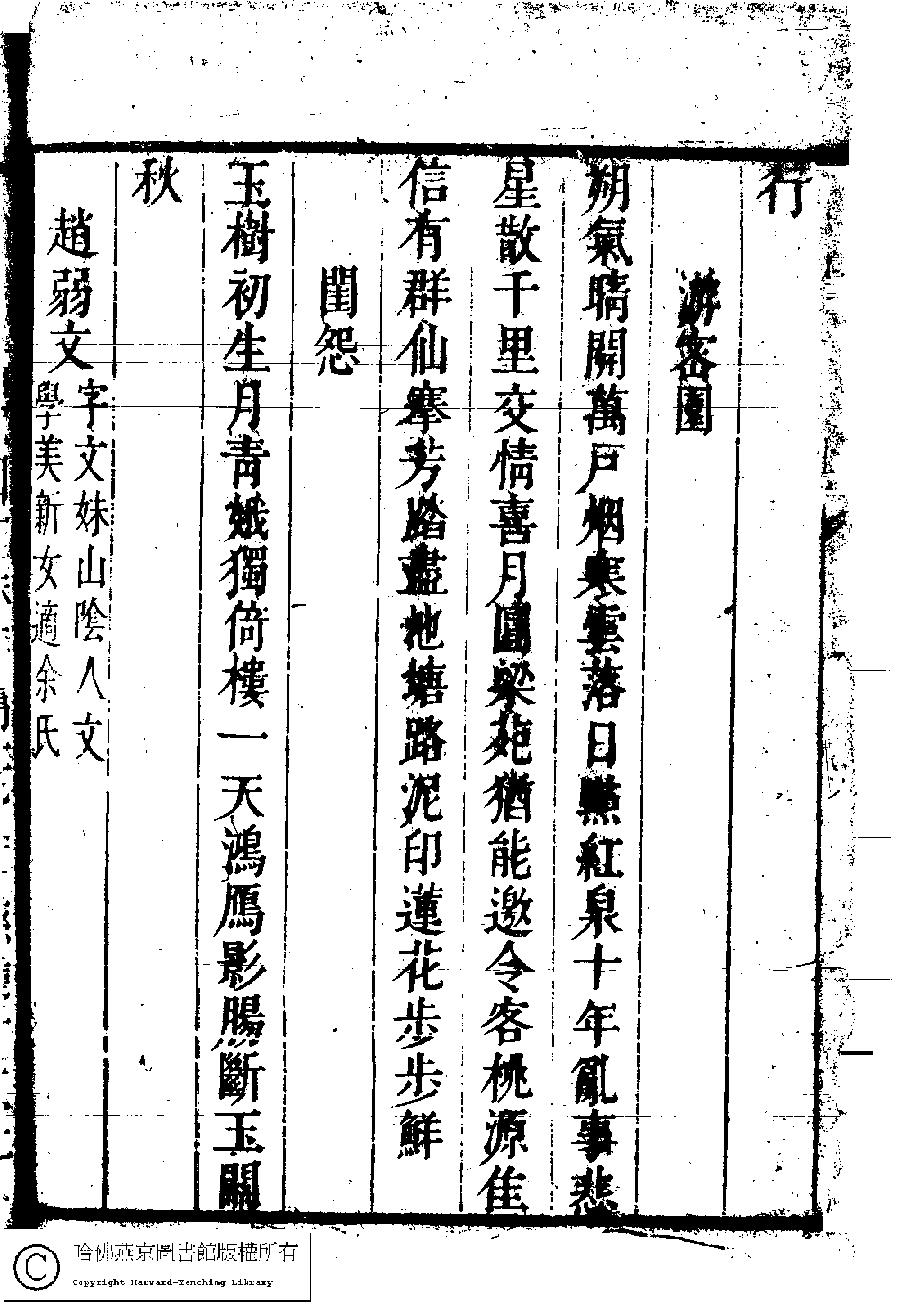 行
游密園
朔氣晴開萬戶烟寒雲落日點紅泉十年亂事悲
星散千里交情喜月圓梁苑猶能邀令客桃源隹
信有群仙搴芳踏盡池塘路泥印蓮花步步鮮
閨怨
玉樹初生月青娥獨倚樓一天鴻鴈影腸斷玉關
秋
趙弱文
字文妹山陰人文
學美新女適余氏
哈佛燕京圖書館版權所有
Copyright Harvard-Yenching Library